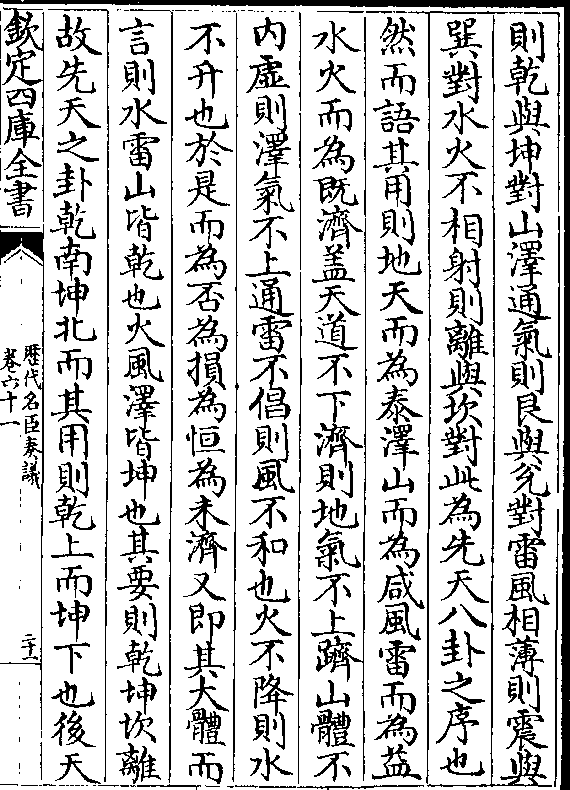 則乾與坤對山澤通氣則艮與兊對雷風相薄則震與
巽對水火不相射則離與坎對此為先天八卦之序也
然而語其用則地天而為泰澤山而為咸風雷而為益
水火而為既濟盖天道不下濟則地氣不上躋山體不
内虛則澤氣不上通雷不倡則風不和也火不降則水
不升也於是而為否為損為恒為未濟又即其大體而
言則水雷山皆乾也火風澤皆坤也其要則乾坤坎離
故先天之卦乾南坤北而其用則乾上而坤下也後天
欽定四庫全書
歴代名臣奏議
卷六十一
二十一